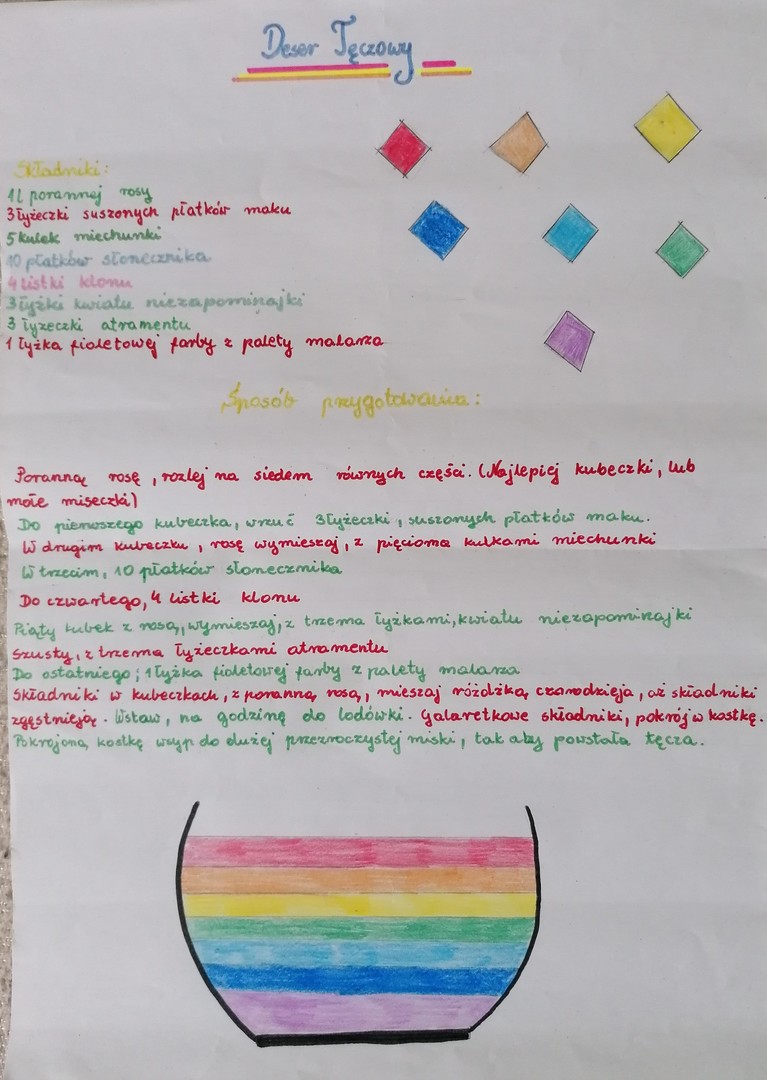 Deser Tęczowy
Składniki:
1l porannej rosy
3 łyżeczki suszonych płatków maku
5 kulek miechunki
10 płatków słonecznika
4 listki klonu
3 łyżki kwiatu niezapominajki
3 łyżeczki atramentu
1 łyżka fioletowej farby z palety malarza
Sposób przygotowania:
Poranną rosę, rozlej na siedem równych części. (Najlepiej kubeczki, lub
małe miseczki)
Do pierwszego kubeczka, wrzuć 3 łyżeczki, suszonych płatków maku.
W drugim kubeczku, rosę wymieszaj, z pięcioma kulkami miechunki
W trzecim, 10 płatków słonecznika
Do czwartego, 4 listki klonu
Piąty kubek z rosą, wymieszaj, z trzema łyżkami, kwiatu niezapominajki
Szusty, z trzema łyżeczkami atramentu
Do ostatniego; 1 łyżka fioletowej farby z palety malarza
Składniki w kubeczkach, z poranną rosą, mieszaj różdżką czarodzieja, aż składniki
zgęstnieją. Wstaw, na godzinę do lodówki. Galaretkowe składniki, pokrój w kostkę.
Pokrojoną kostkę wsyp do dużej przezroczystej miski, tak aby powstała tęcza.